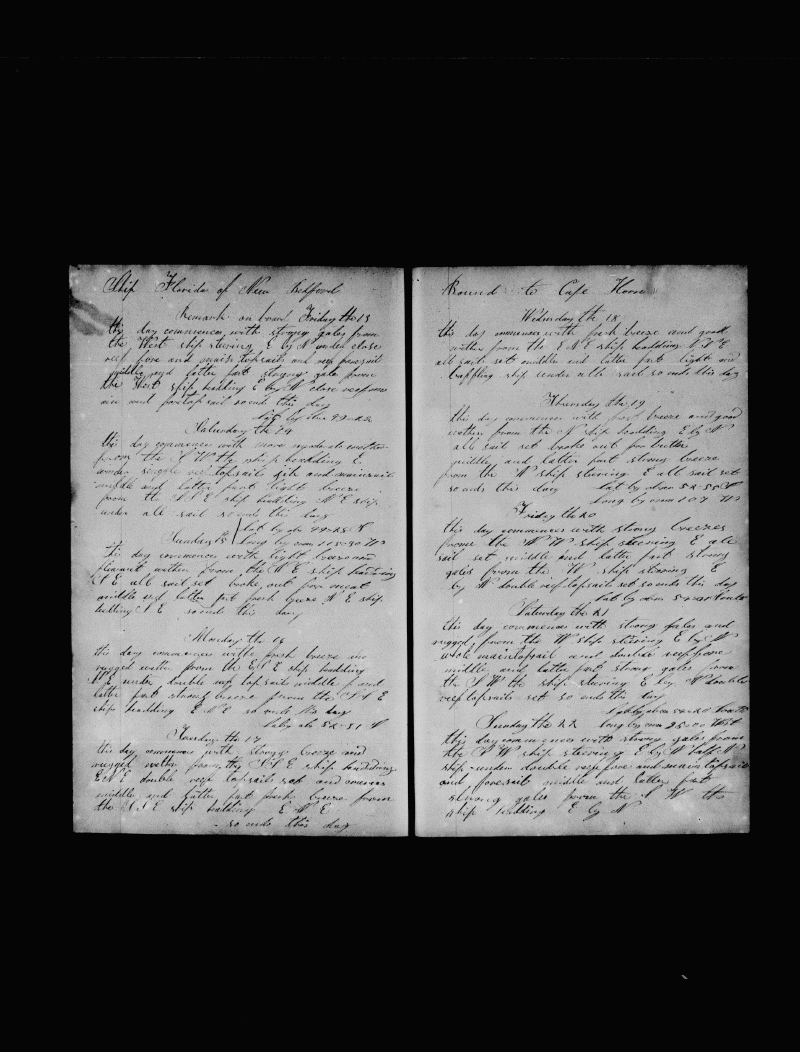 Ship Florida of New Bedford
Remark on board Friday the 13
this day commences with strong gales from
the West ship steering E by N under close
reef fore and main topsails and reef foresail
middle and latter part strong gale from
the West ship heading E by N close reef
and fortopsail so ends this day
lat by
Saturday the 14
this day commences with more moderate weather
from the S W the ship heading E
under single reef topsails jib and mainsail
middle and latter part light breeze
from the S S E ship heading N E ship
under all sail so ends this day
lat by ob
Sunday 15 long by crom
this day commences with light breeze and
pleasant wether from the N E ship heading
S E all sail set broke out for meat
middle and latter part fresh breeze N E ship
heding S E so ends this day
Monday the 16
this day commences with fresh breeze and
rugged wether from the E S E ship hedding
N E under double reef topsails middle and
latter part strong breeze from the S S E
ship headding E N E so ends this day
lat by obs 52-31 S
Tuesday the 17
this day commences with strong breeze and
rugged wether from the S S E ship hedding
E N E double reep topsails set and courses
middle and latter part fresh breeze from
the S S E ship hedding E N E
so ends this day
Bound to Cape Horne
Wedensday the 18
this day commences with fresh breeze and good
wether from the E N E ship hedding S S E
all sail set middle and latter part light and
baffling ship under all sail so ends this day
Thursday the 19
this day commences with fresh breeze and good
wether from the N ship hedding E by N
all sail set broke out for butter
middle and latter part strong breeze
from the W ship stearing E all sail set
so ends this day lat by obser 52-55 S
long by crom 107 W
Friday the 20
this day commences with strong breezes
from the W ship steering E all
sail set middle and latter part strong
gales from the W ship steering E
by N double reep topsails set so ends this day
lat by obser South
Saturday the 21
this day commences with strong gales and
rugged from the W ship steering E by N
whole maintopsail and double reep fore
middle and latter part strong gales from
the S W the ship steering E by N double
reep topsails set so ends this day
lat by obser South
Sunday the 22 long by crom West
this day commences with strong gales from
the S W ship steering E by N half N
ship under double reep fore and main topsails
and foresail middle and latter part
strong gales from the S W the
ship hedding E by N